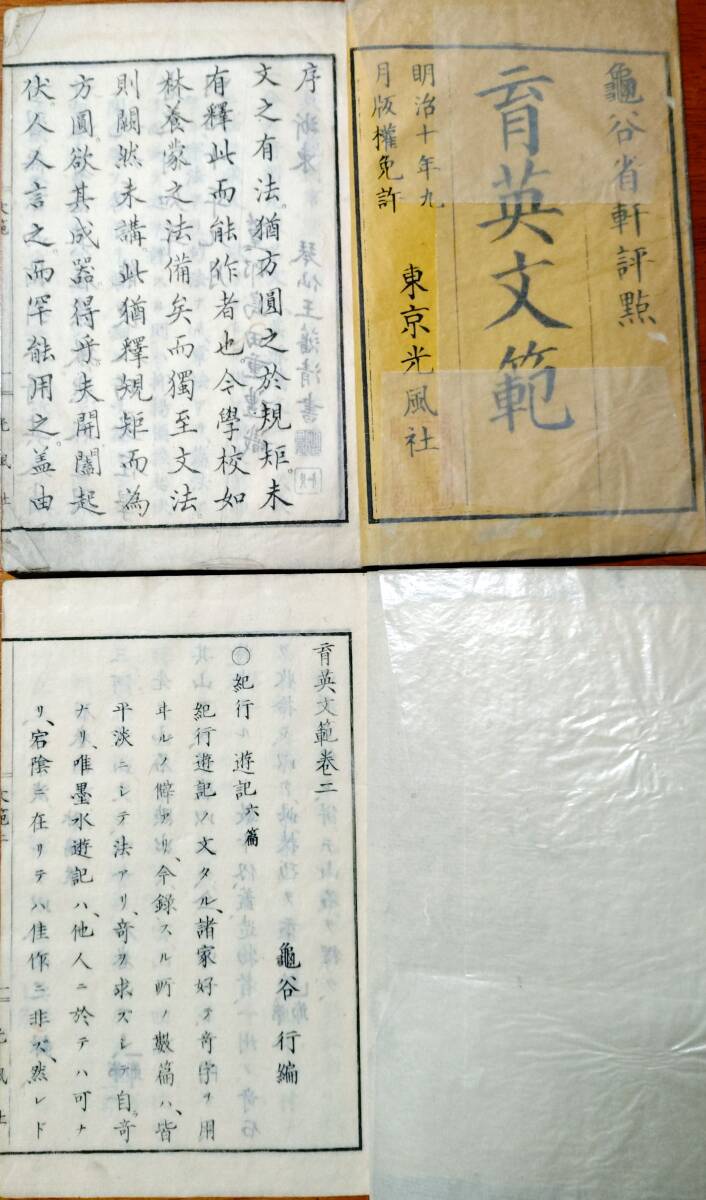 龜谷省軒評點
育英文範
明治十年九
月版權免許
東京光風社
序
文之有法猶方圓之於規矩未
有釋此而能作者也今學校如
林養蒙之法備矣而獨至文法
則闕然未講此猶釋規矩而為
方圓欲其成器得乎夫開闔起
伏人人言之而罕能用之蓋由
育英文範卷二
龜谷行編
○紀行 遊記 六篇
紀行遊記ノ文タル、諸家好テ奇字ヲ用
ヰルノ癖アリ、今録スル所ノ數篇ハ、皆
平淡ニシテ法アリ、奇ヲ求ズシテ自。奇
ナリ、唯墨水遊記ハ、他人ニ於テハ可ナ
リ、宕陰ニ在リテハ佳作ニ非ズ、然レド